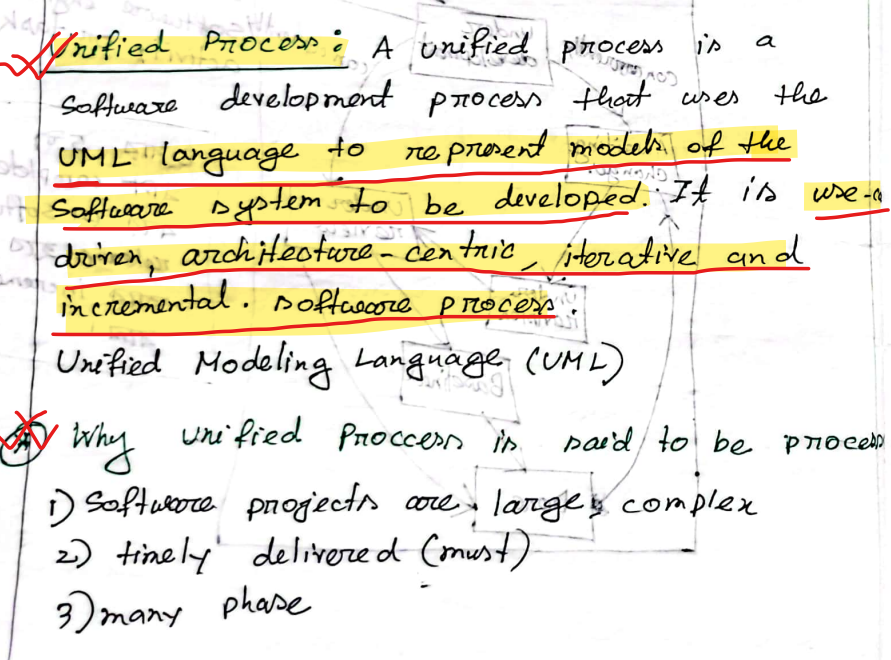 Unified Process: A unified process is a
software development process that uses the
UML language to represent models of the
software system to be developed. It is use-
driven, architecture-centric, iterative and
incremental. software process.
Unified Modeling Language (UML)
Why unified Proccess is said to be process
1) Software projects are large, complex
2) timely delivered (must)
3) many phase